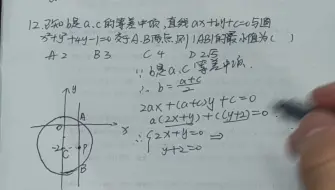 12.已知b是a.c的等差中项,直线ax+by+c=0与圆
x²+y²+4y-1=0交于A.B两点,则|AB|的最小值为( )
A 2 B 3 C 4 D 2√5
∵ b是a.c等差中项.
∴ b=(a+c)/2
2ax+(a+c)y+c=0
a(2x+y)+c(y+2)=0
∴ {2x+y=0 ⇒
y+2=0
y
A
0
x
-2
C
P
B